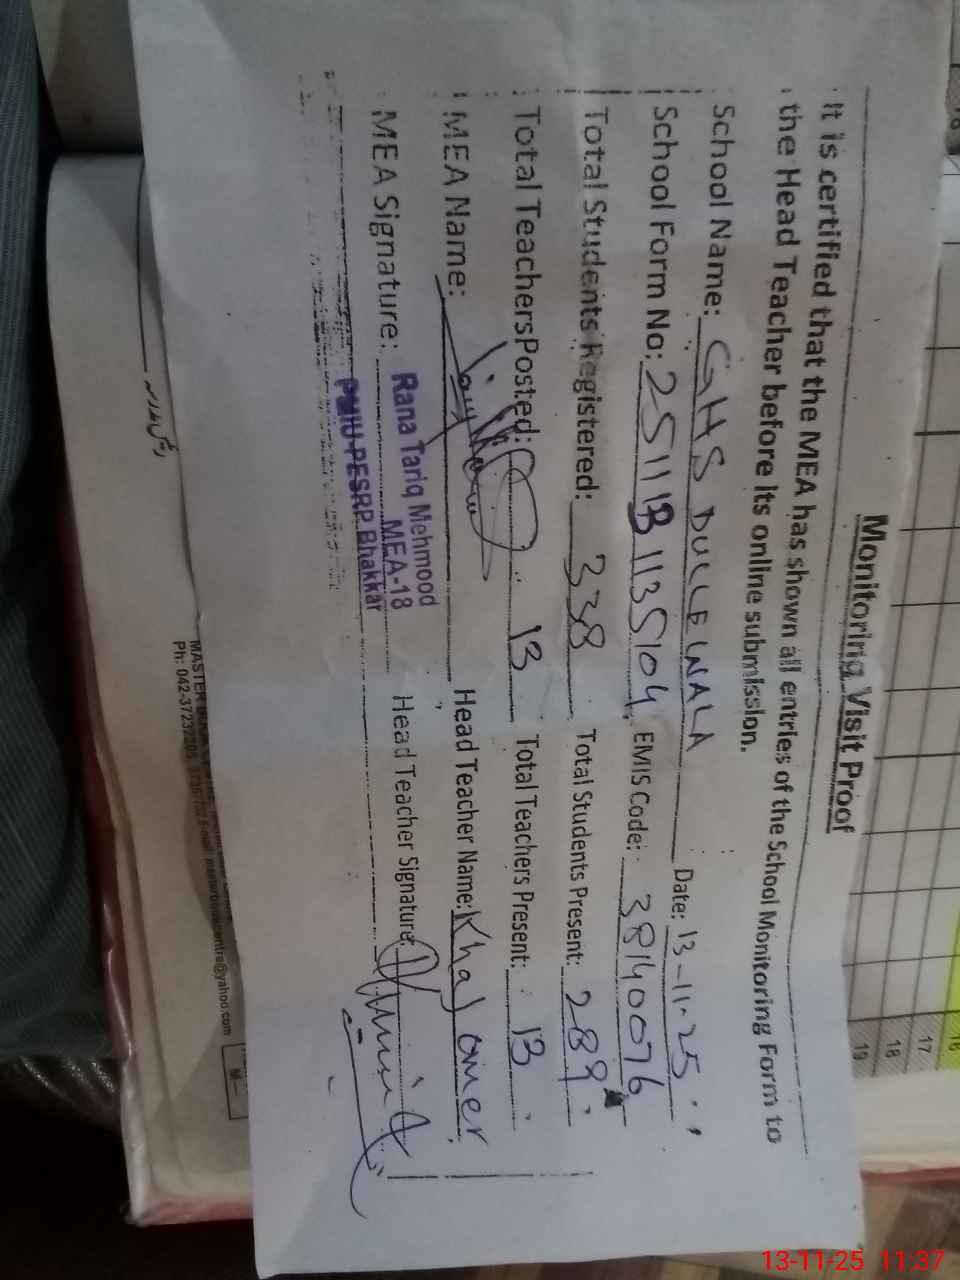 Monitoring Visit Proof
It is certified that the MEA has shown all entries of the School Monitoring Form to
the Head Teacher before its online submission.
School Name: GHS DULLEWALA Date: 13-11-25
School Form No: 2511B1135104 EMIS Code: 38140076
Total Students Registered: 338 Total Students Present: 289
Total TeachersPosted: 13 Total Teachers Present: 13
MEA Name: Head Teacher Name: Omer
MEA Signature: Head Teacher Signature:
Rana Tariq Mehmood
MEA-18
PMIU-PESRP Bhakkar
MASTER
Ph: 042-37232
masterbookcentre@yahoo.com
16
17
18
19
13-11-25 11:37